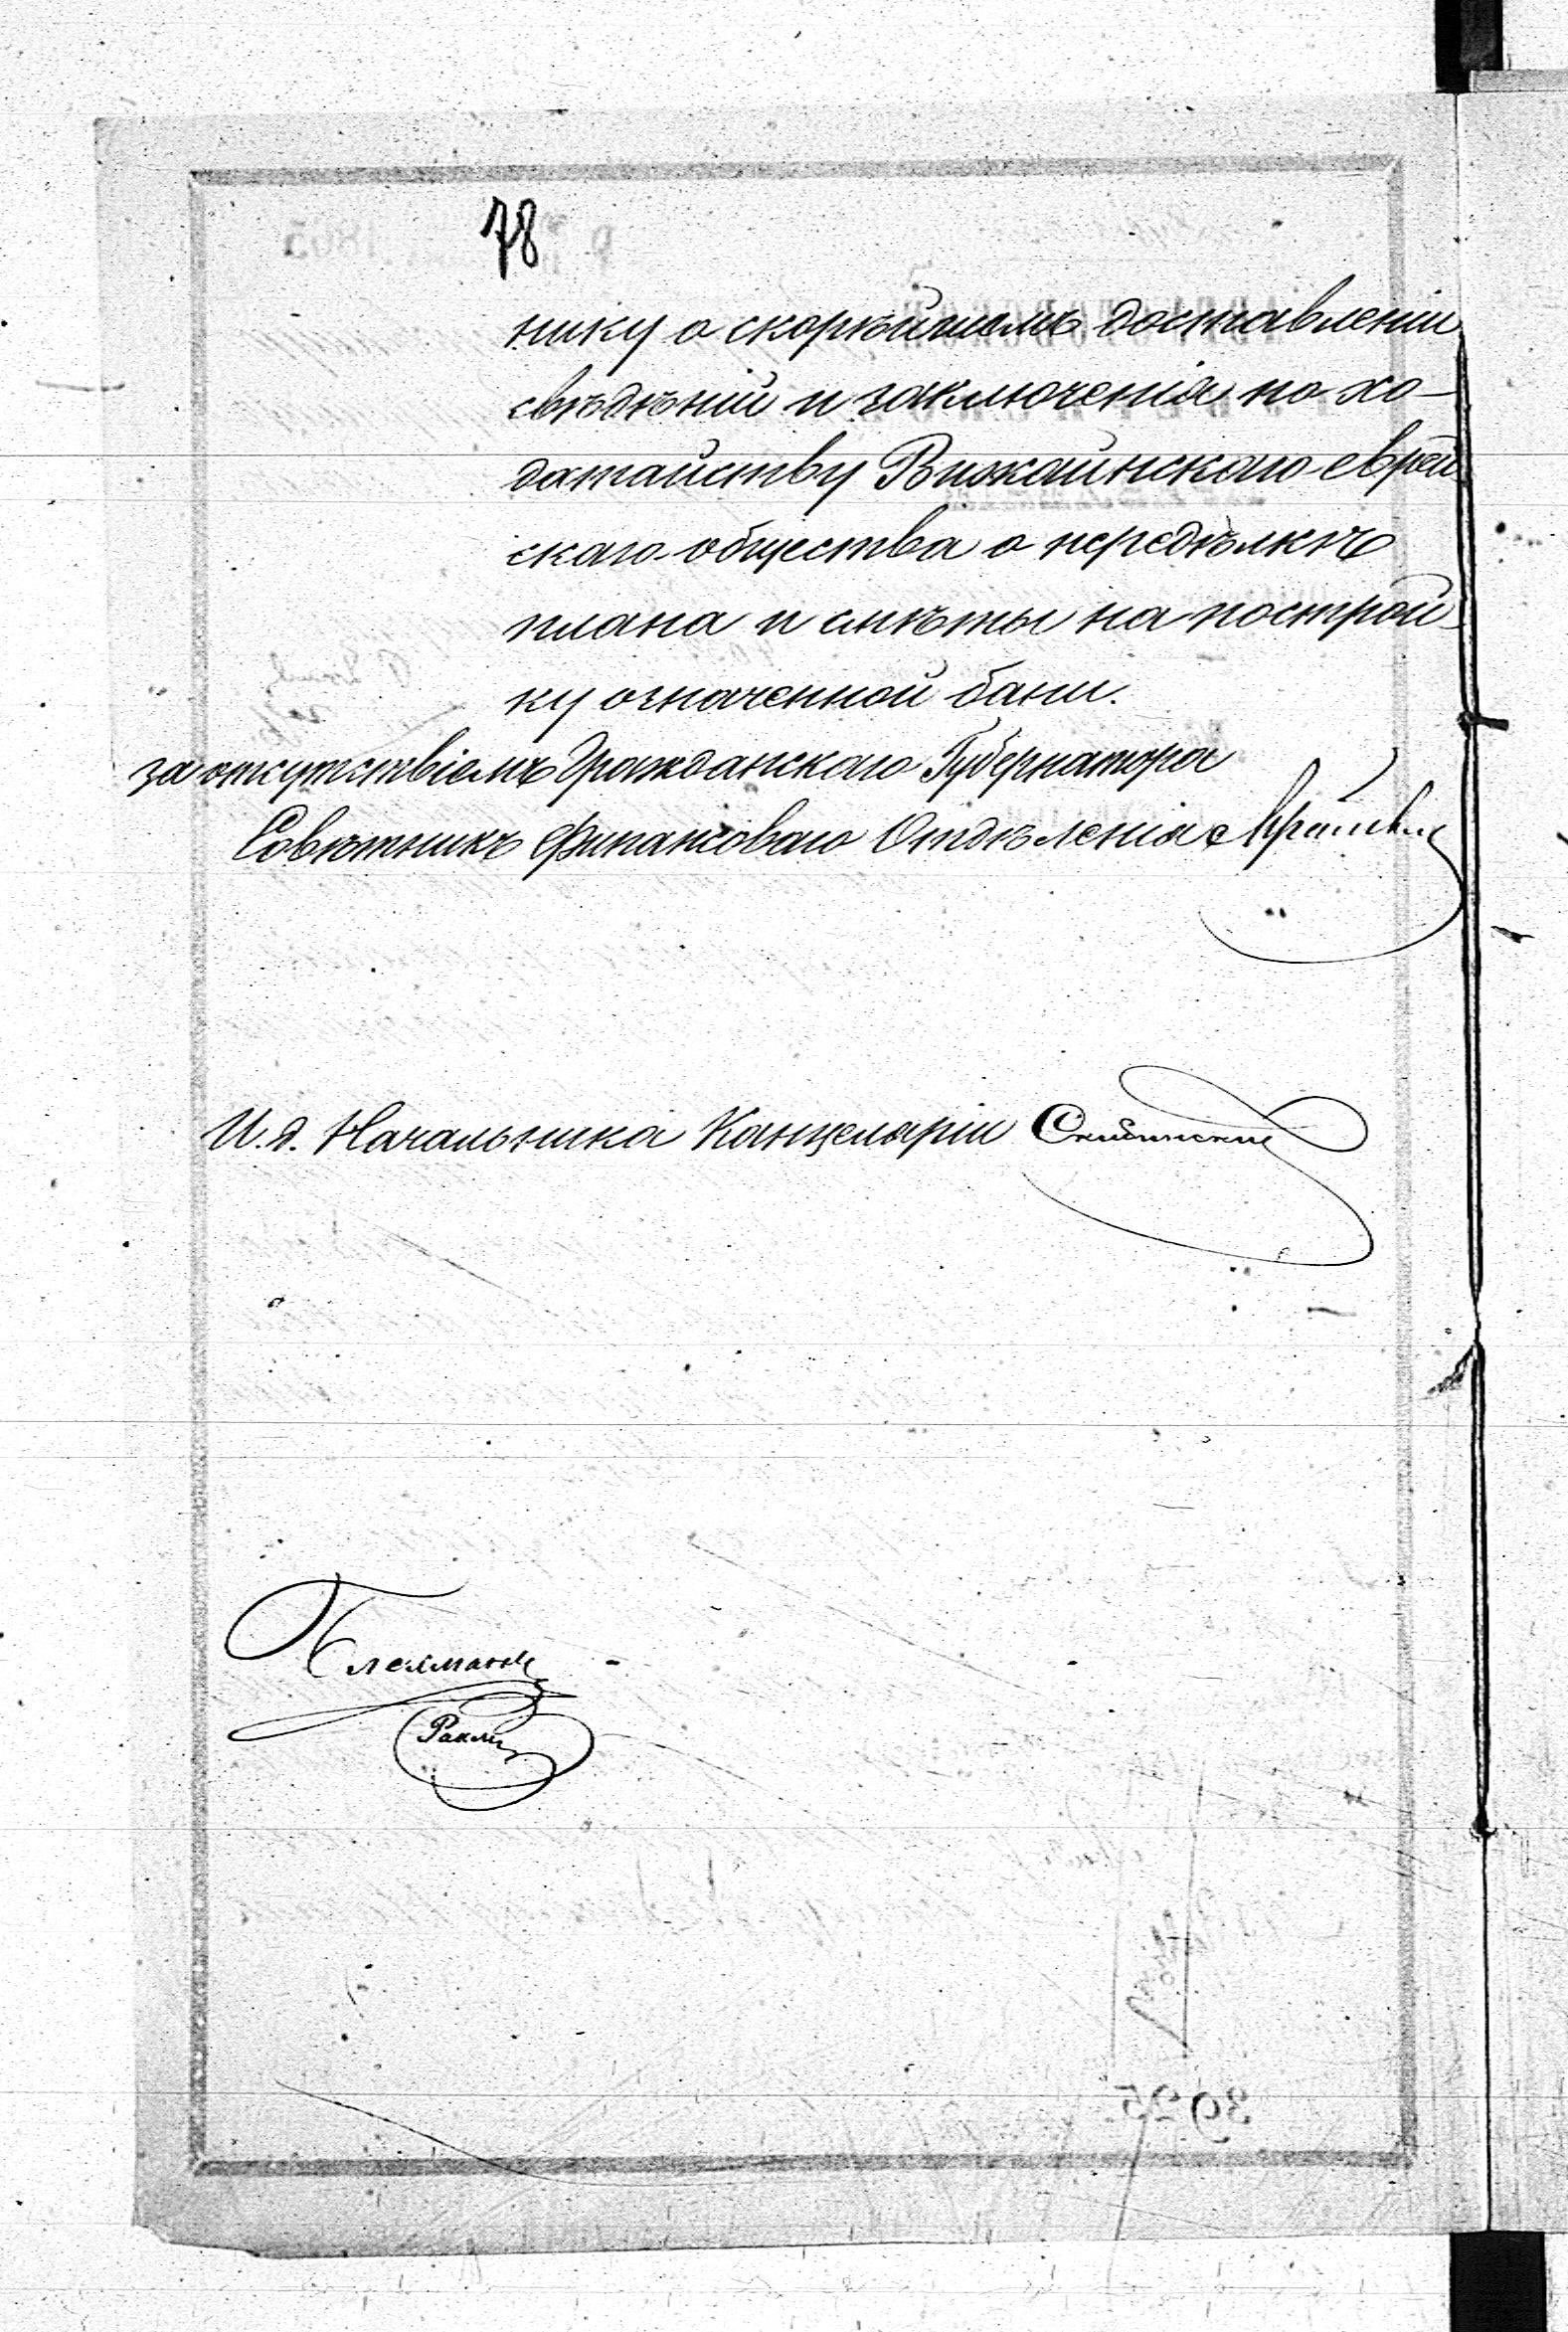 78
нику о скорѣйшемъ доставленіи
свѣдѣній и заключенія по хо-
датайству Вижайнскаго еврей
скаго общества о передѣлкѣ
плана и смѣты на построй-
ку означенной бани.
за отсутствіемъ Гражданскаго Губернатора
Совѣтникъ Финансоваго Отдѣленія
И.д. Начальника Канцеляріи